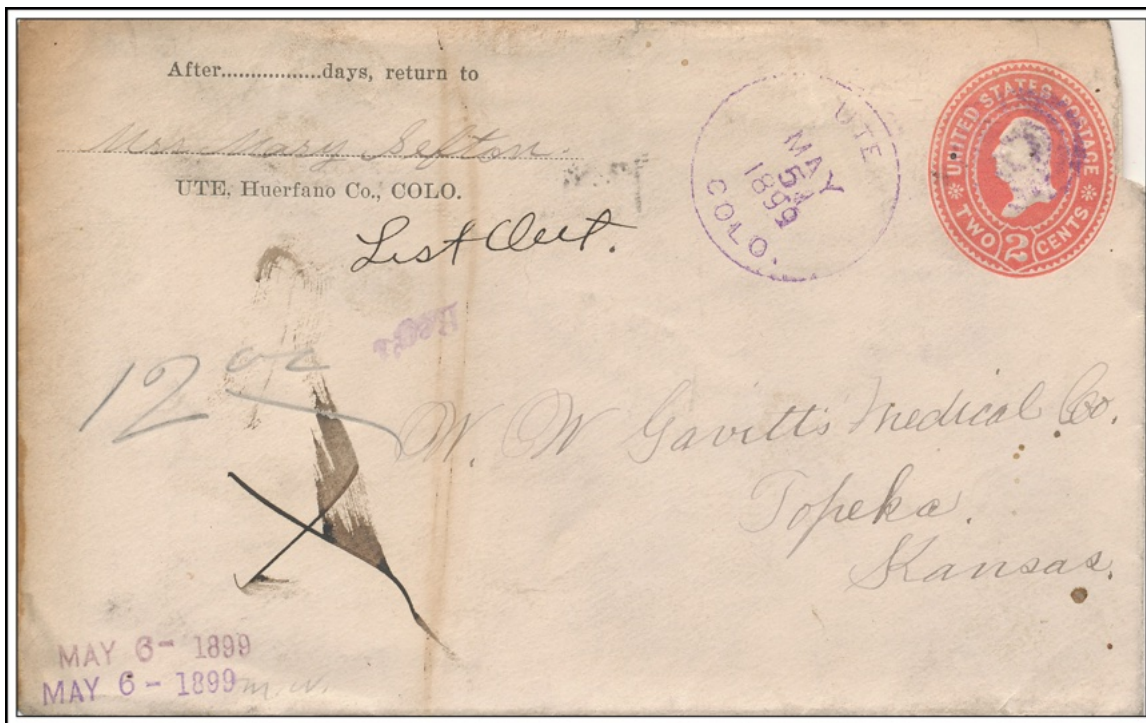 After.................days, return to
Mrs Mary Sefton.
UTE, Huerfano Co., COLO.
List Out.
UTE
MAY
5
1899
COLO.
UNITED STATES POSTAGE
TWO 2 CENTS
Rec'd
12
W. W. Gavitt's Medical Co.
Topeka.
Kansas.
MAY 6- 1899
MAY 6- 1899